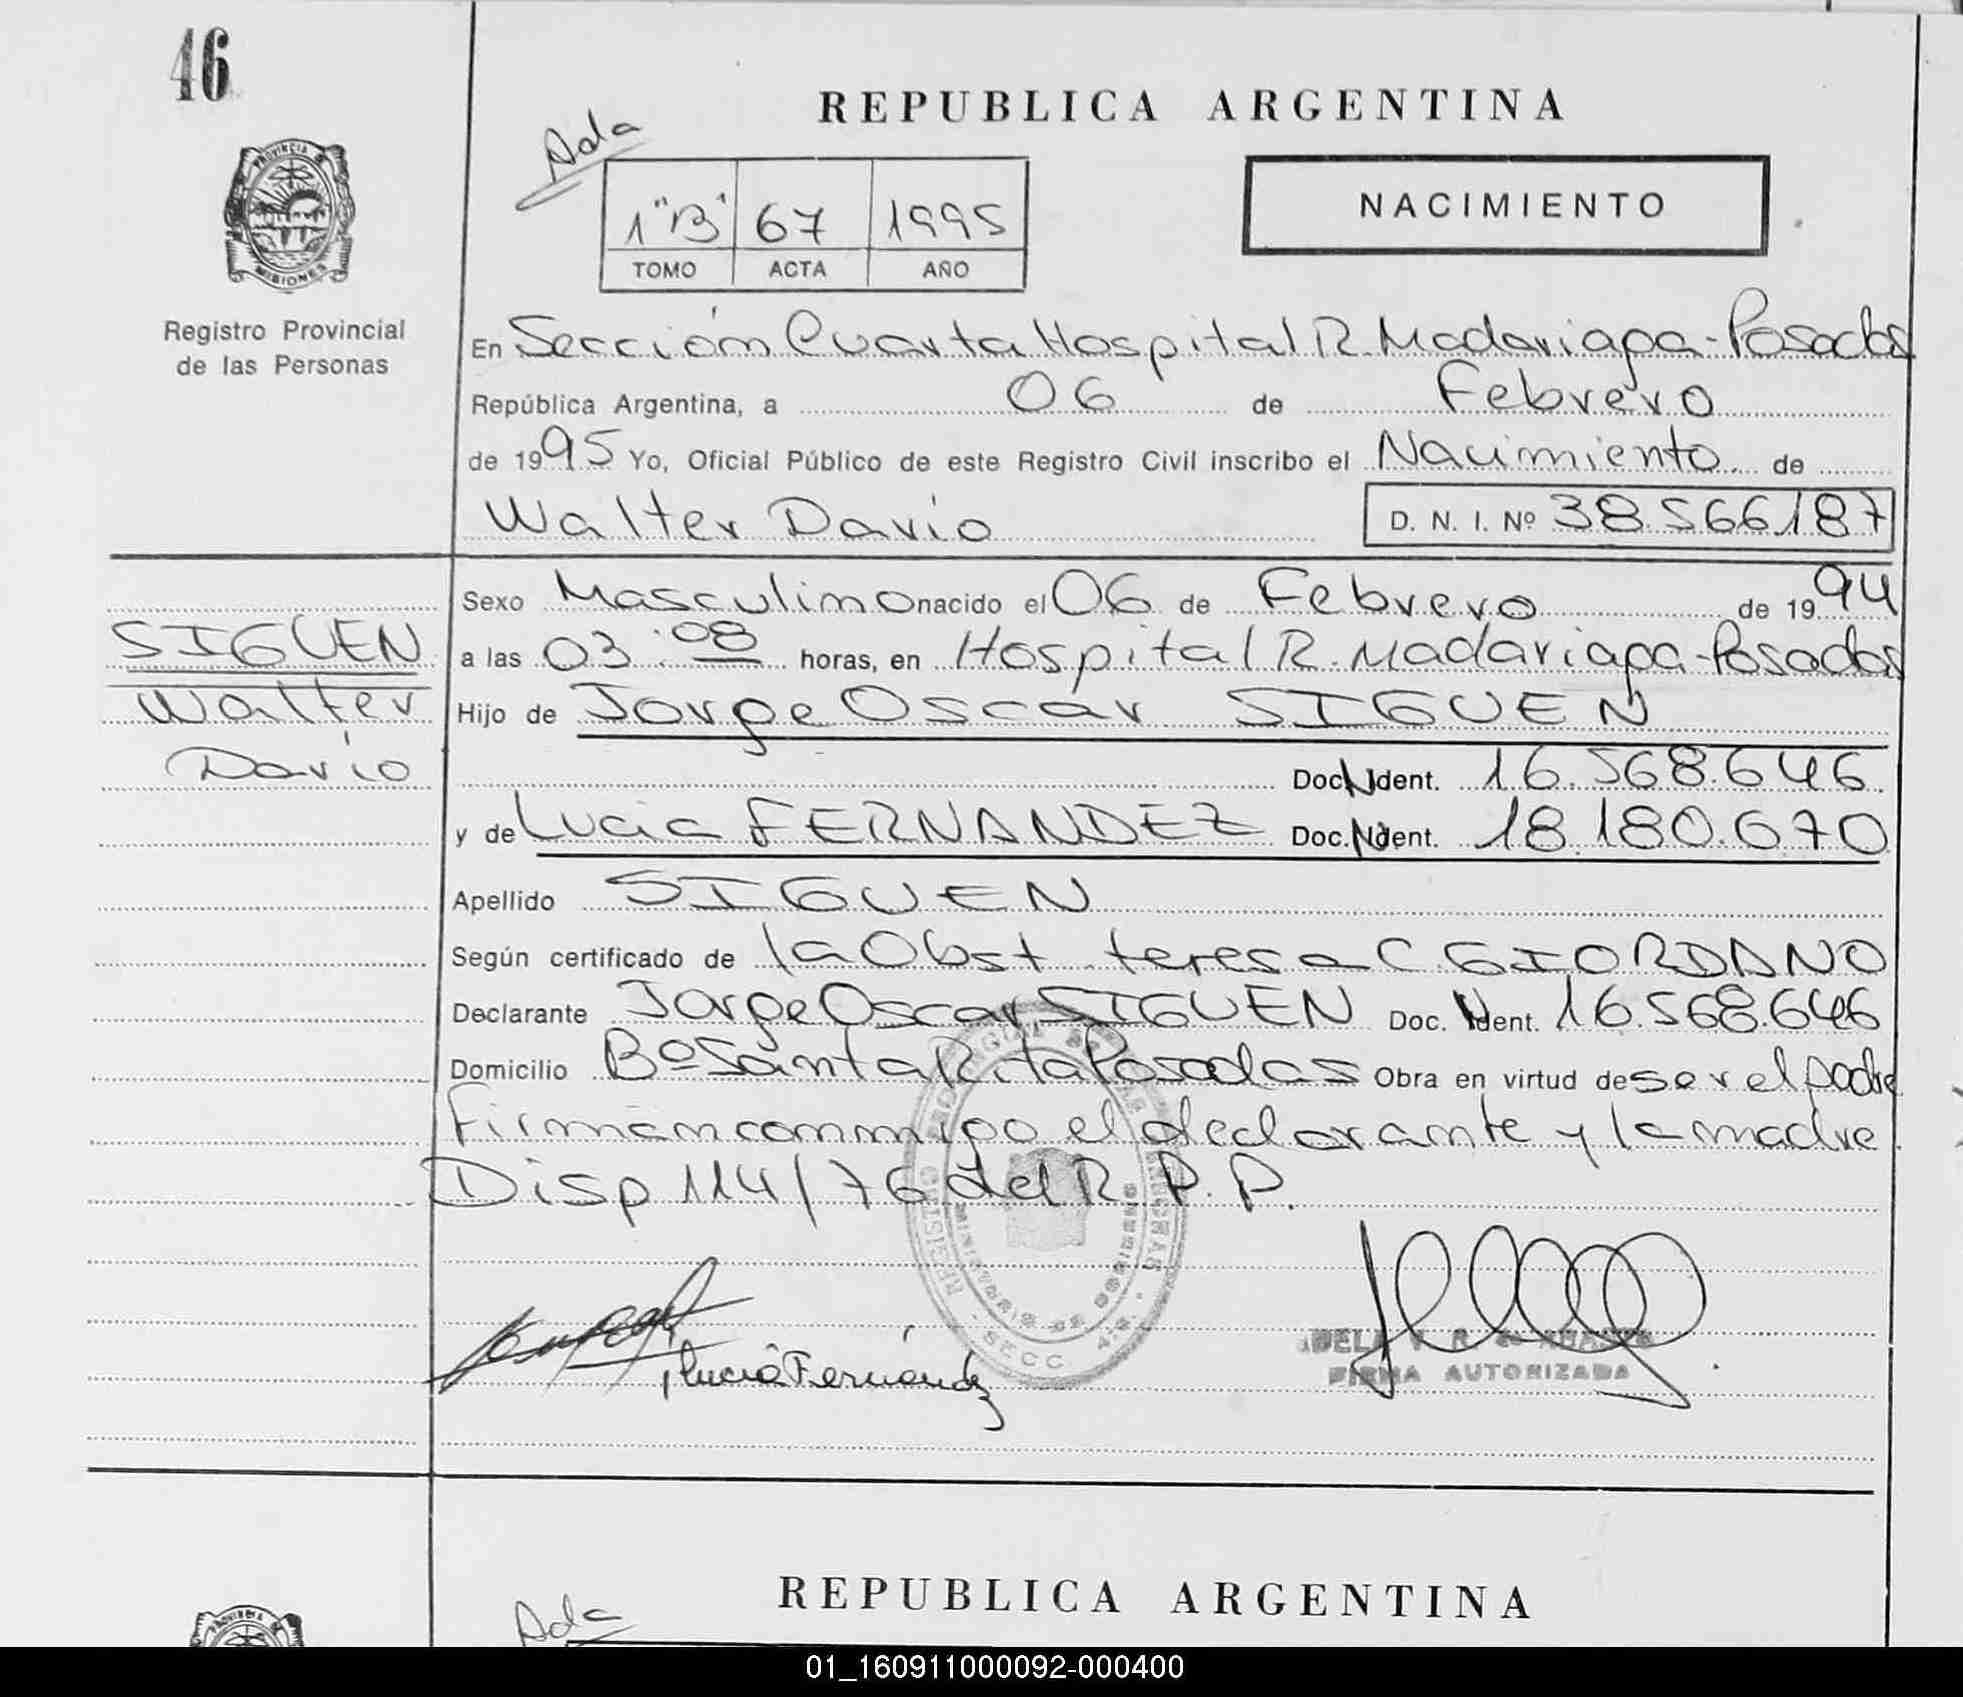 46
REPUBLICA ARGENTINA
Ada
PROVINCIA DE
MISIONES
NACIMIENTO
1 "B" 67 1995
TOMO ACTA AÑO
Registro Provincial
de las Personas
En Sección Cuarta Hospital R. Madariaga - Posadas
República Argentina, a 06 de Febrero
de 1995 Yo, Oficial Público de este Registro Civil inscribo el Nacimiento de
Walter Dario D. N. I. Nº 38.566.187
SIGUEN
Walter
Dario
Sexo Masculino nacido el 06 de Febrero de 1994
a las 03:08 horas, en Hospital R. Madariaga - Posadas
Hijo de Jorge Oscar SIGUEN
Doc. N Ident. 16.568.646
y de Lucia FERNANDEZ Doc. N Ident. 18.180.670
Apellido SIGUEN
Según certificado de la Obst teresa C GIORDANO
Declarante Jorge Oscar SIGUEN Doc. N Ident. 16.568.646
Domicilio Bº Santa Rita Posadas Obra en virtud de ser el padre
Firman conmigo el declarante y la madre
Disp 114/76 del R. P. P.
SECC 4a
Lucia Fernández
FIRMA AUTORIZADA
REPUBLICA ARGENTINA
Ada
01_160911000092-000400